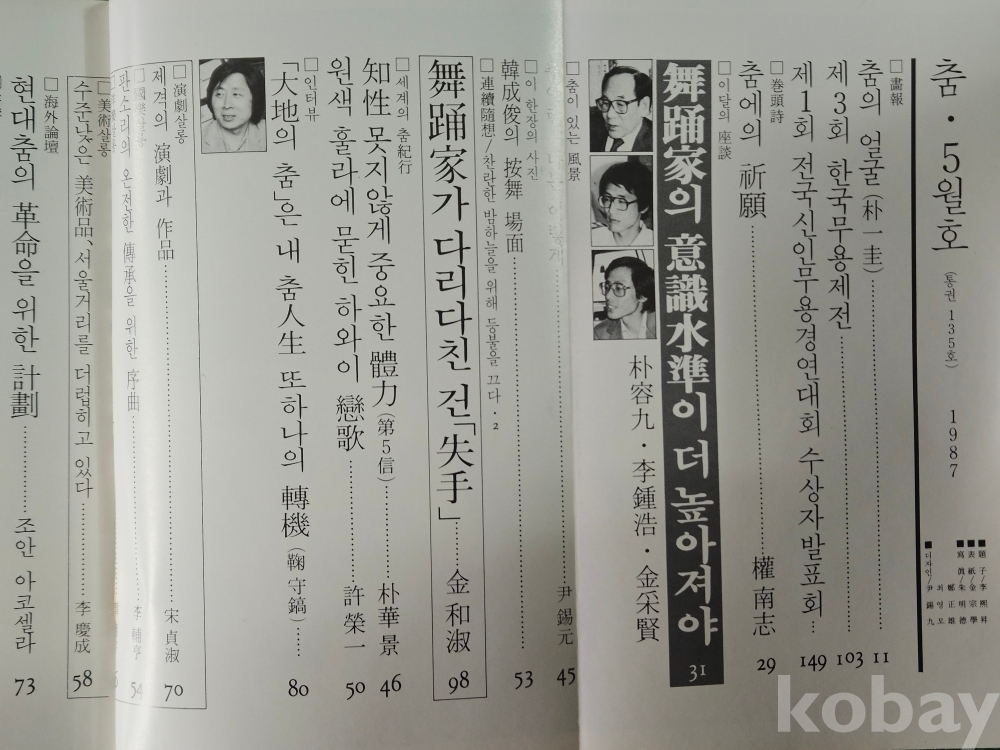 춤·5월호
(통권 135호)
1987
■題 字/李熙昇
■表 紙/金宗學
■寫 眞/朱明德
鄭正雄
최영모
■디자인/尹錫九
□畵報
춤의 얼굴(朴一圭)…………11
제3회 한국무용제전…………103
제1회 전국신인무용경연대회 수상자발표회…149
□巻頭詩
춤에의 祈願…………權南志 29
□이달의 座談
舞踊家의 意識水準이 더 높아져야 31
朴容九·李鍾浩·金采賢
□춤이 있는 風景
尹錫元 45
□이 한장의 사진
韓成俊의 按舞 場面…………53
□連續隨想/찬란한 밤하늘을 위해 등불을 끄다·2
舞踊家가 다리다친 건「失手」……金和淑 98
□세계의 춤紀行
知性 못지않게 중요한 體力(第5信)……朴華景 46
원색 훌라에 묻힌 하와이 戀歌…………許榮一 50
□인터뷰
「大地의 춤」은 내 춤人生 또하나의 轉機(鞠守鎬)……80
□演劇살롱
제격의 演劇과 作品…………宋貞淑 70
판소리의 온전한 傳承을 위한 序曲 李輔亨 54
□美術살롱
수준낮은 美術品, 서울거리를 더럽히고 있다……李慶成 58
□海外論壇
현대춤의 革命을 위한 計劃…………조안 아코셀라 73
kobay